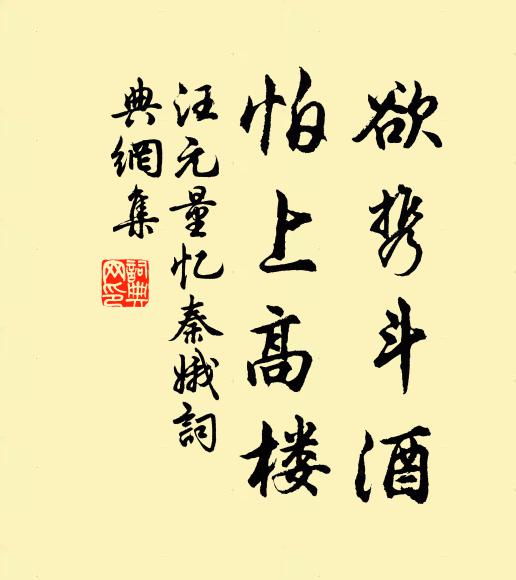 欲携斗酒
怕上高楼
汪元量忆秦娥詞
典網集
詞典
网印